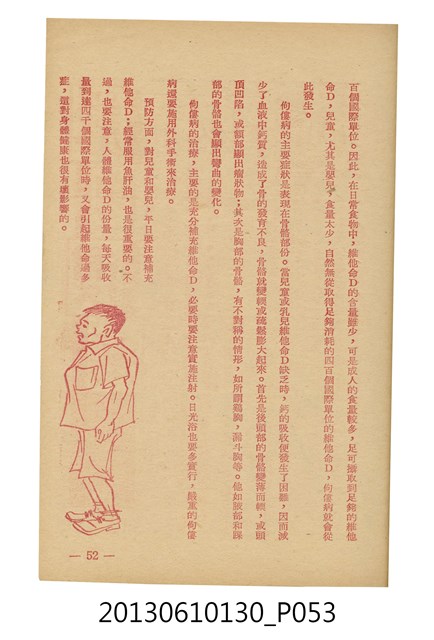 百個國際單位。因此，在日常食物中，維他命D的含量雖少，可是成人的食量較多，足可攝取到足夠的維他
命D，兒童，尤其是嬰兒，食量太少，自然無從取得足夠消耗的四百個國際單位的維他命D，佝僂病就會從
此發生。
佝僂病的主要症狀是表現在骨骼部份。當兒童或乳兒維他命D缺乏時，鈣的吸收便發生了困難，因而減
少了血液中鈣質，造成了骨的發育不良，骨骼就變軟或疏鬆膨大起來。首先是後頭部的骨骼變薄而軟，或頭
頂凹陷，或額部顯出瘤狀物；其次是胸部的骨骼，有不對稱的情形，如所謂鷄胸，漏斗胸等。他如腕部和踝
部的骨骼也會顯出彎曲的變化。
佝僂病的治療，主要的是充分補充維他命D，必要時要注意實施注射。日光浴也要多實行，嚴重的佝僂
病還要施用外科手術來治療。
預防方面，對兒童和嬰兒，平日要注意補充
維他命D；經常服用魚肝油，也是很重要的。不
過，也要注意，人體維他命D的份量，每天吸收
量到達四千個國際單位時，又會引起維他命過多
症，這對身體健康也很有壞影響的。
— 52 —
20130610130_P053